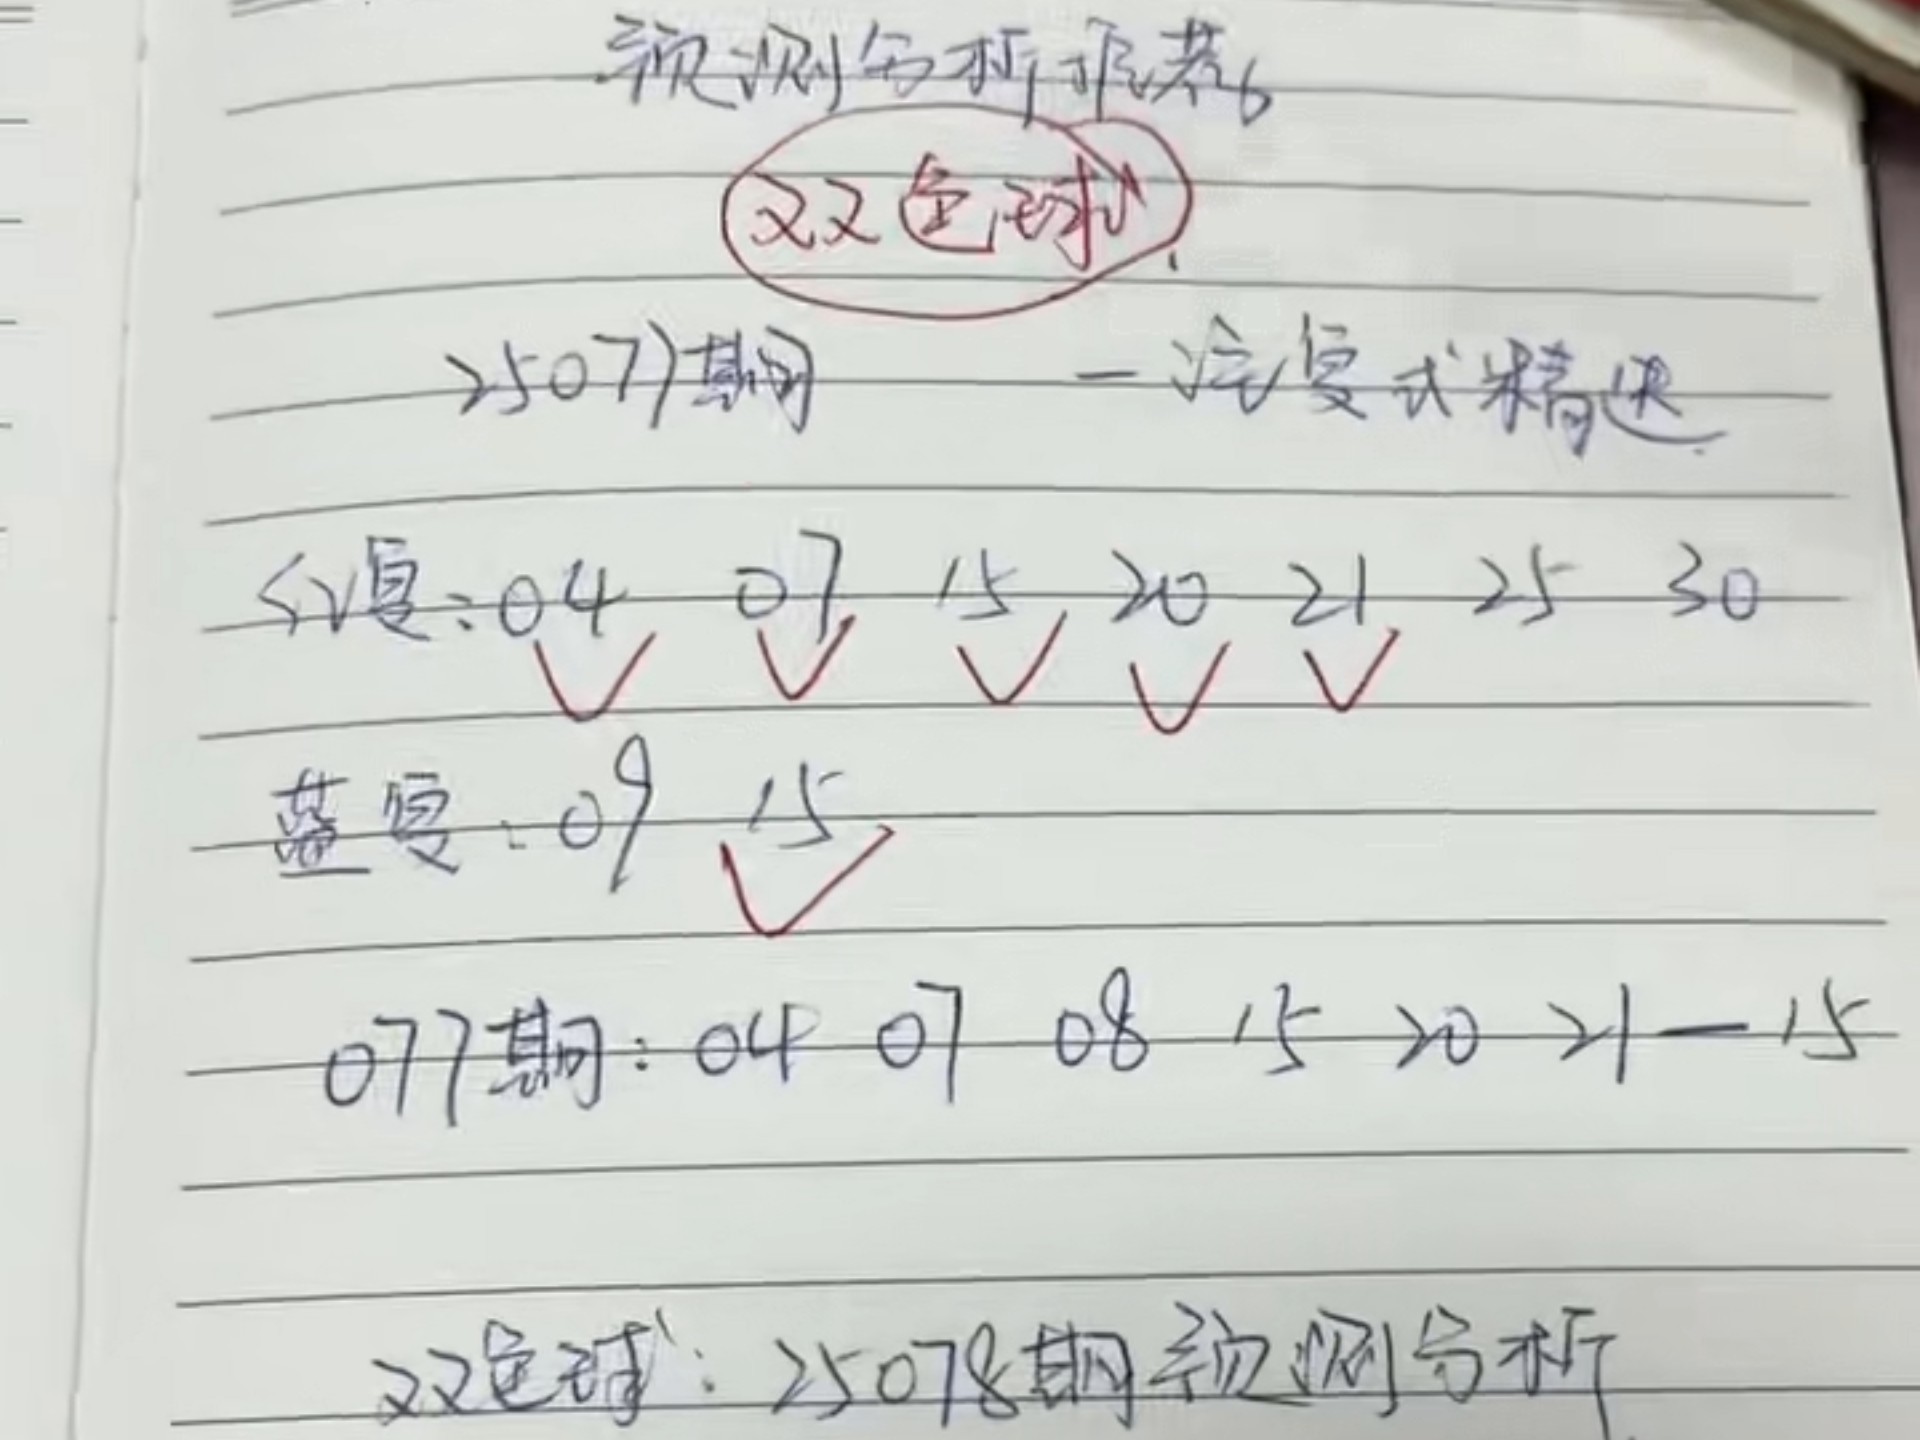 预测分析推荐
双色球
25077期 一注复式精选
红复:04 07 15 20 21 25 30
蓝复:09 15
077期:04 07 08 15 20 21—15
双色球:25078期预测分析